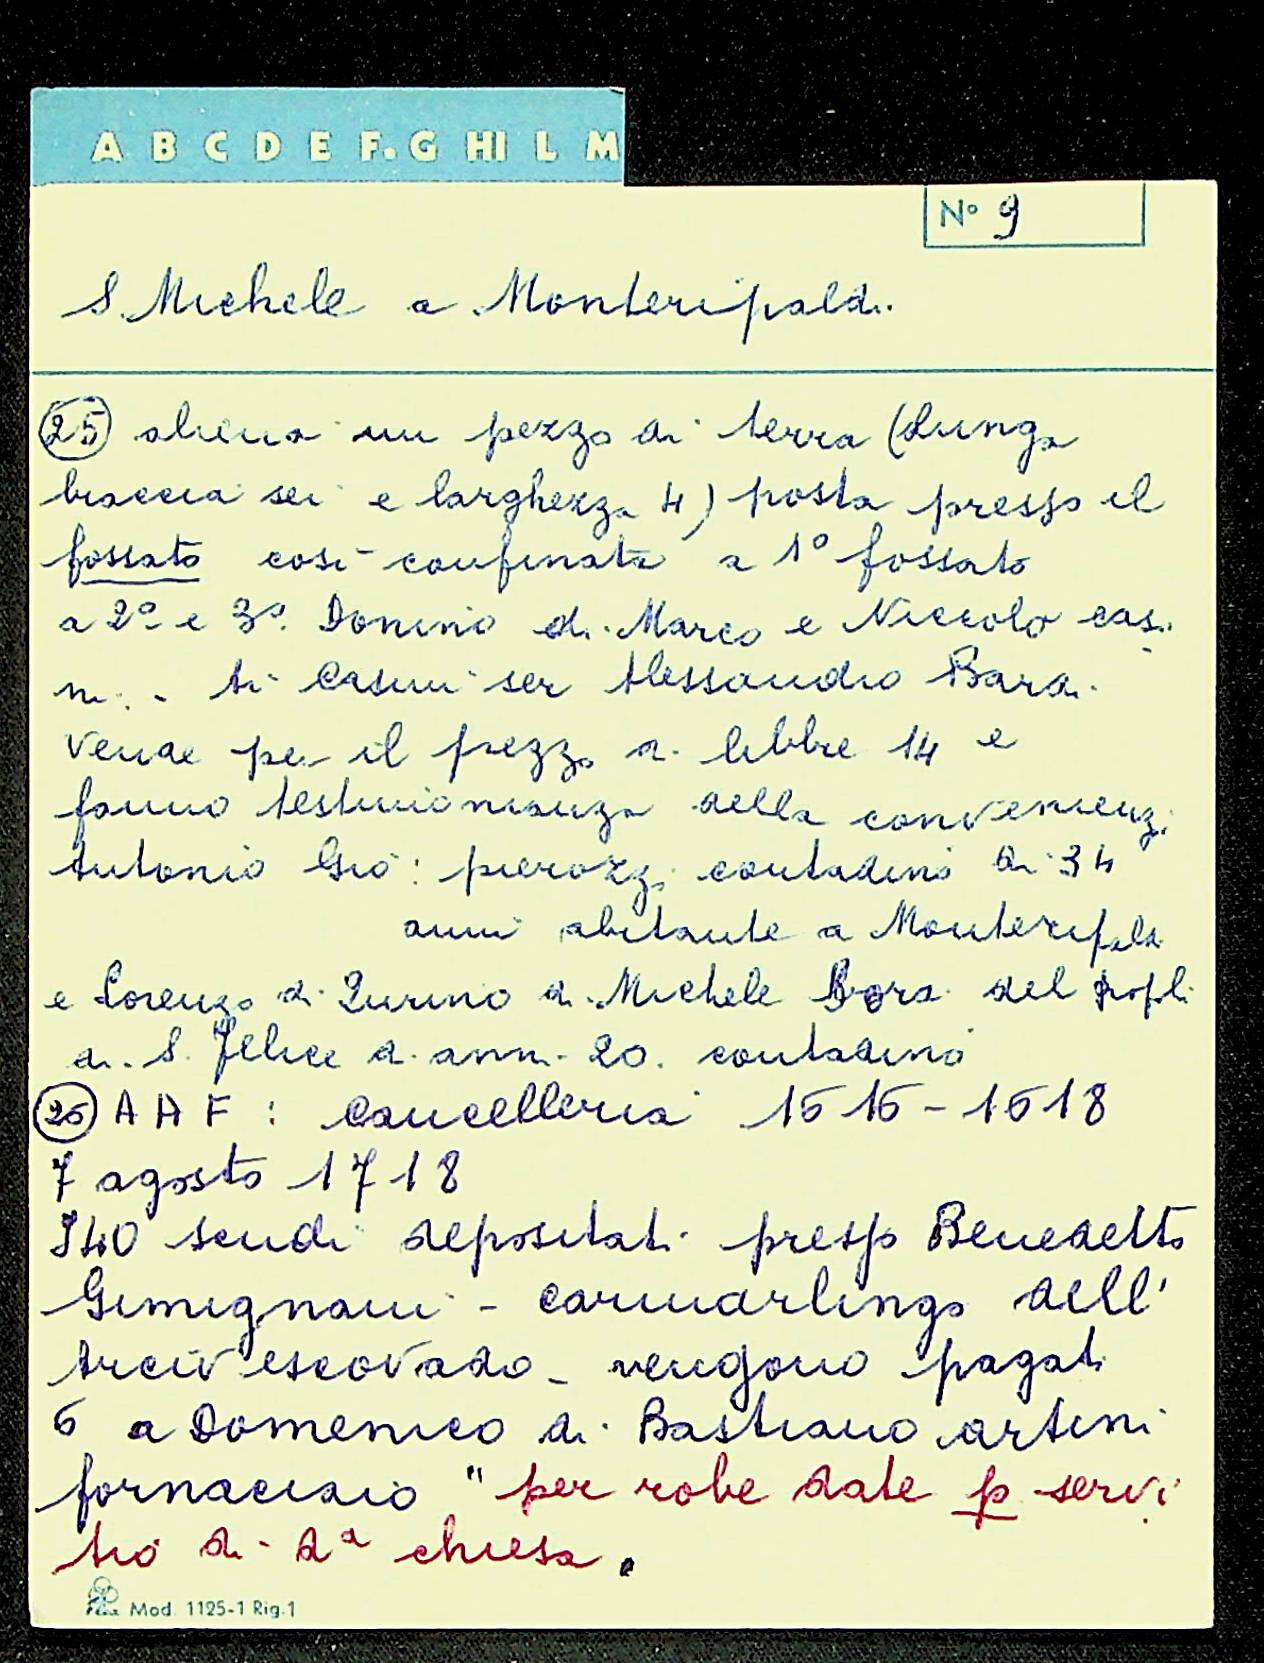 A B C D E F.G HI L M
N° 9
S. Michele a Monteripaldi
25 aliena un pezzo di terra (lunga
braccia sei e larghezza 4) posta presso il
fossato così confinata a 1° fossato
a 2° e 3° Donino di Marco e Niccolò casi
ni - ti Casini ser Alessandro Bardi
vende per il prezzo di libbre 14 e
fanno testimonianza della convenienza
Antonio Gio: pierozzi contadino di 34
anni abitante a Monteripaldi
e Lorenzo di Quirino di Michele del popolo
di S. Felice di anni 20. contadino
26 A A F : Cancelleria 1616 - 1618
7 agosto 1718
340 scudi depositati presso Benedetto
Gimignani - camarlingo dell'
Arcivescovado - vengono pagati
6 a Domenico di Bastiano artini
fornaciaio "per robe date p servi
tio di d^a chiesa.
Mod. 1125-1 Rig.1